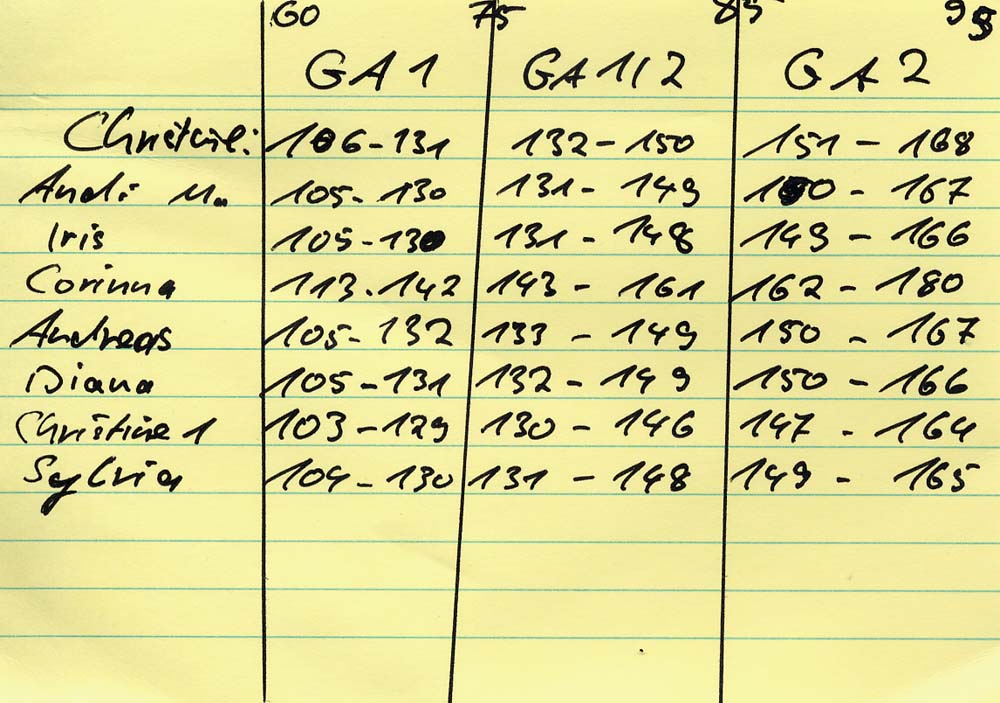 60 75 85 95
GA 1 GA 1/2 GA 2
106-131 132-150 151-168
Andi M. 105-130 131-149 150-167
Iris 105-130 131-148 149-166
Corinna 113-142 143-161 162-180
Andreas 105-132 133-149 150-167
Diana 105-131 132-149 150-166
Christine 1 103-129 130-146 147-164
Sylvia 104-130 131-148 149-165